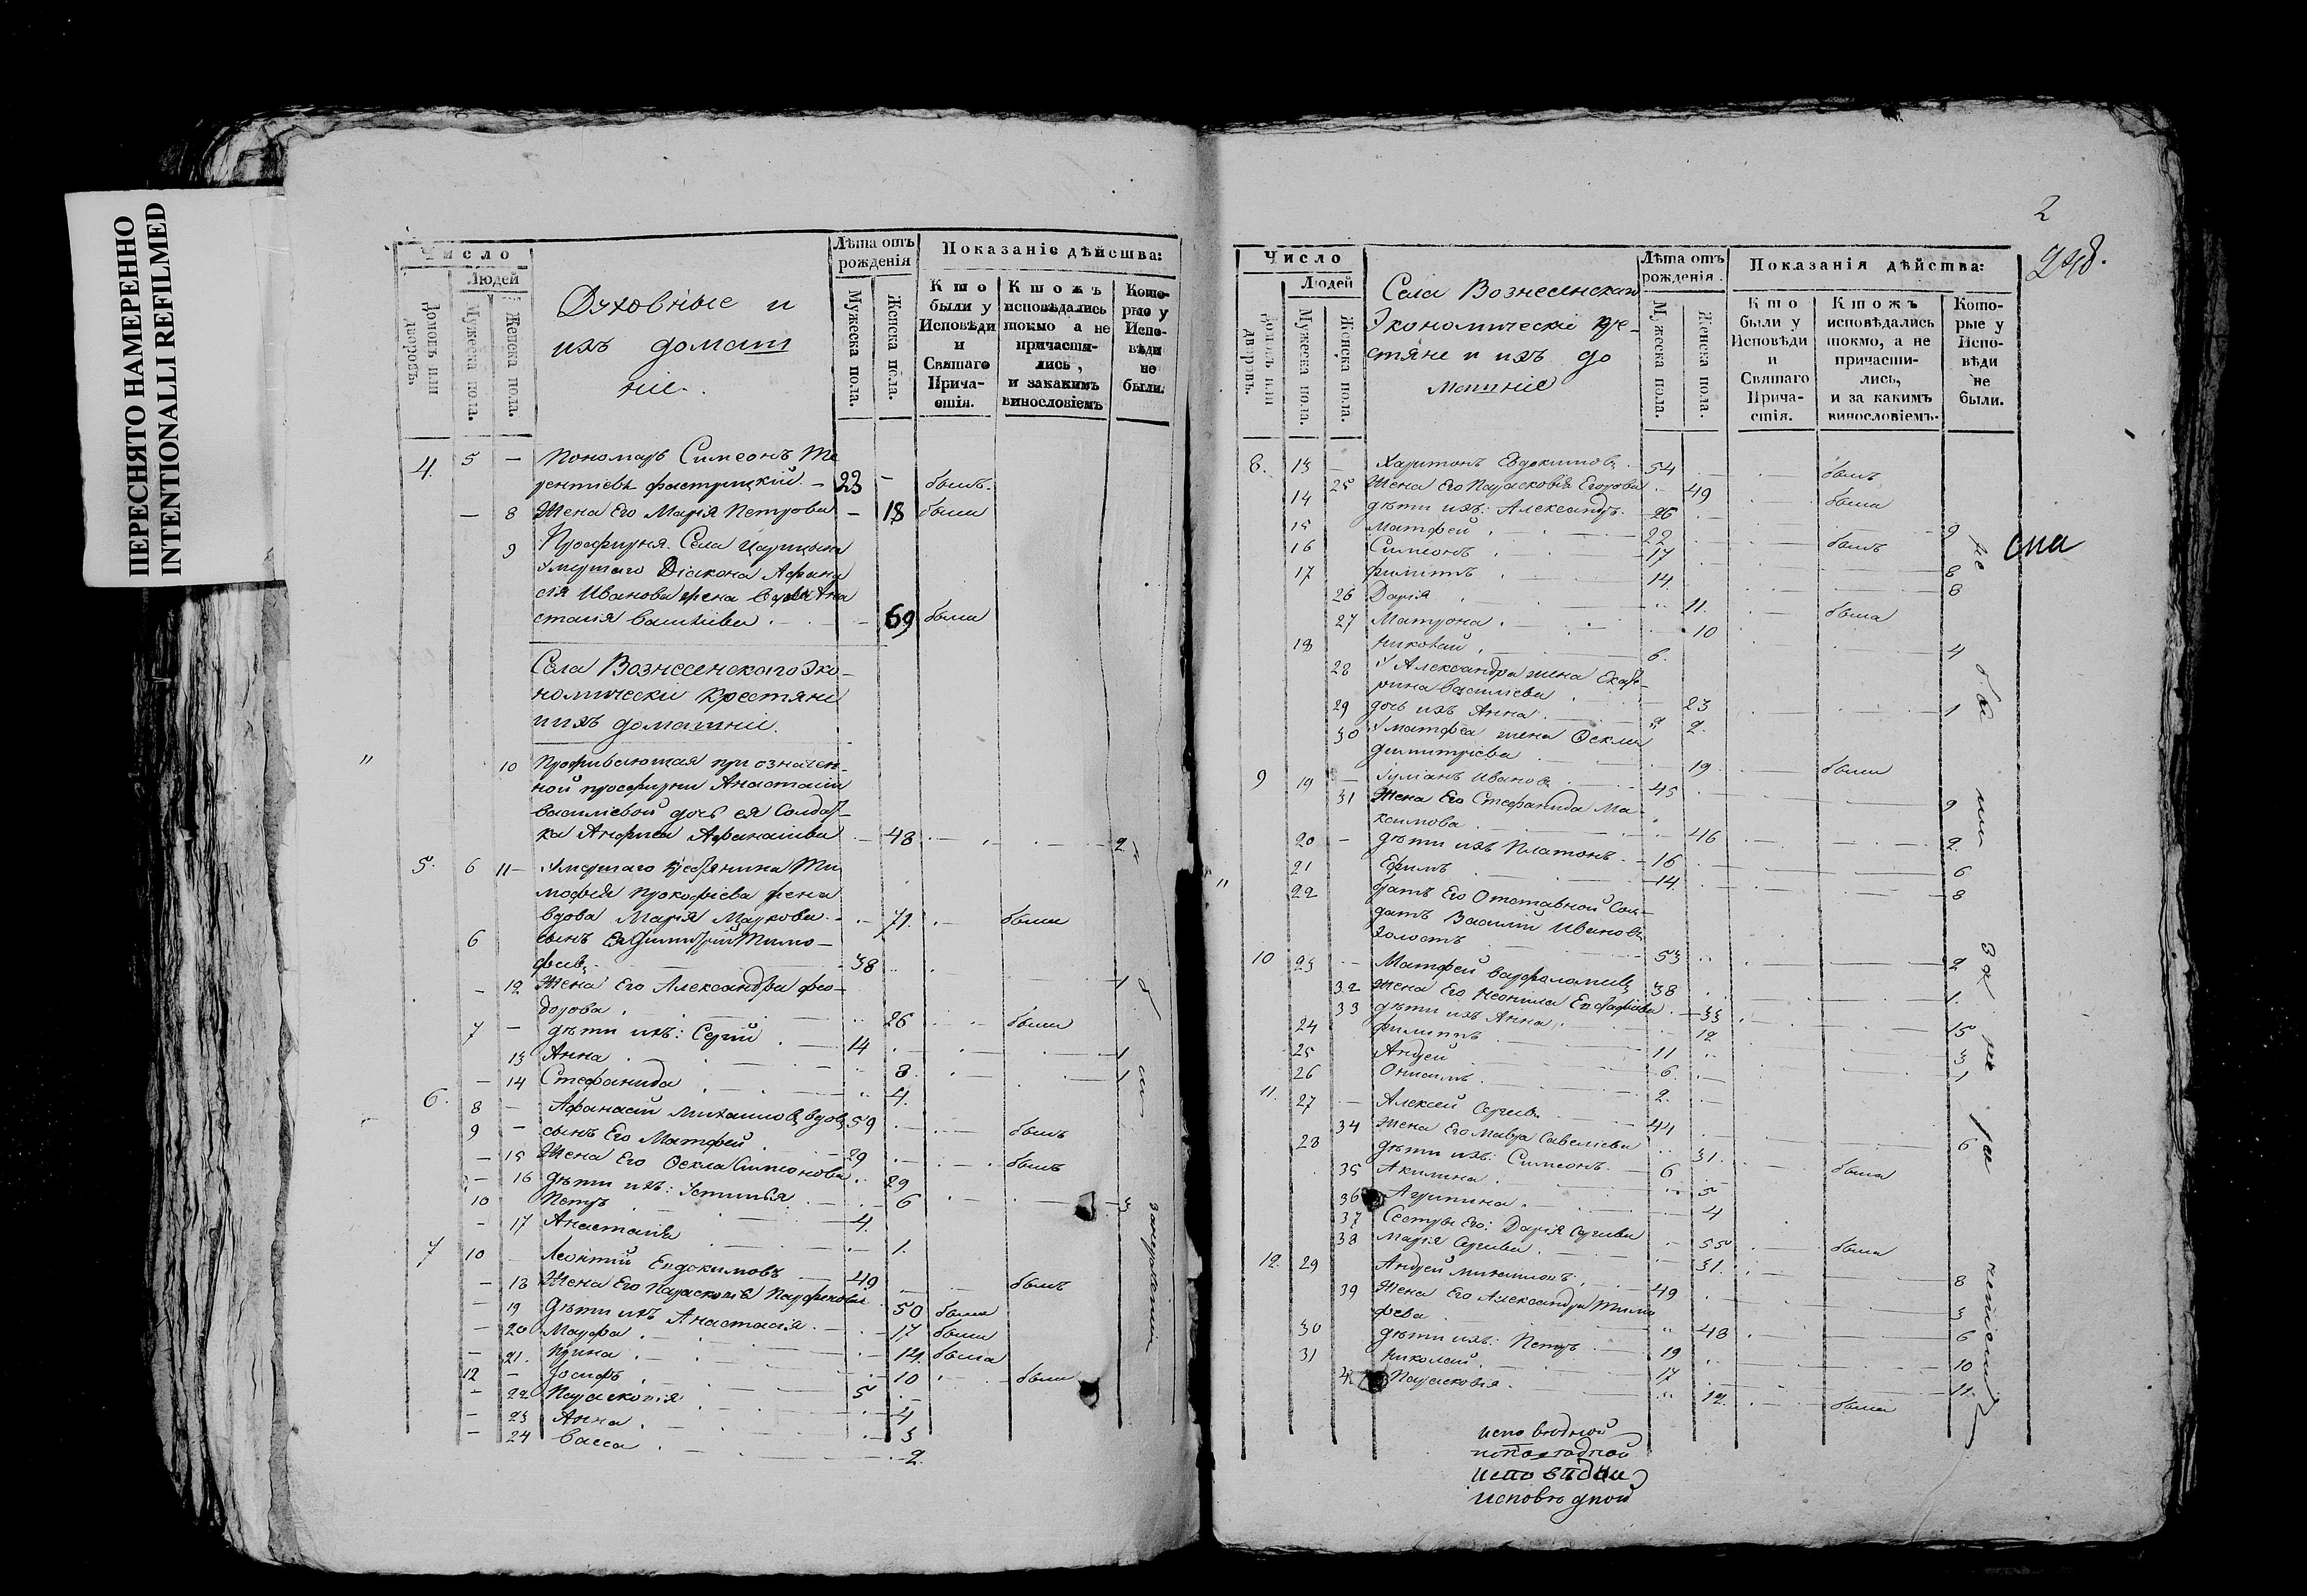 ПЕРЕСНЯТО НАМЕРЕННО
INTENTIONALLI REFILMED
Число
Людей
Домовъ или дворовъ.
Мужеска пола.
Женска пола.
Духовные и
ихъ домаш
ніе.
Лѣта отъ рожденія
Мужеска пола.
Женска пола.
Показаніе дѣйства:
Кто были у Исповѣди и Святаго Прича-стія.
Ктожъ исповѣдались токмо а не причасти-лись, и закакимъ винословіемъ
Кото-рые у Испо-вѣди не были.
4. 5 — Пономарь Симеонъ Те
рентіевъ — 23 — былъ.
— 8 Жена Его Марія Петрова — 18 была
9 Просфирня Села
Умершаго Діакона Афана
сія Иванова жена вдова Ана
стасія Василіева — 69 была
Села Вознесенскаго Эко-
номическіе Крестяне
и ихъ домашніе.
" 10 Проживающая при означен-
ной просфирни Анастасіи
Василіевой дочь ея Солдат-
ка Анфиса Афанасіева — 48 — 2
5. 6 11 — Умершаго крестянина Ти
мофея Прокофіева жена
вдова Марія Маркова — 71. — была
6 сынъ Ея Димитрій Тимо-
феевъ — 38
— 12 Жена Его Александра Фео-
дорова — 26 — была
7 — дѣти ихъ: Сергій — 14
13 Анна — 8.
— 14 Стефанида — 4.
6. 8 — Афанасій Михаиловъ вдовъ 59 — былъ
9 — сынъ Его Матфей — 29 — былъ
— 15 Жена Его Оекла Симеонова — 29
— 16 дѣти ихъ: Устинья — 6
10 Петръ — 4.
— 17 Анастасія — 1.
7 10 Леонтій Евдокимовъ — 49 — былъ
— 18 Жена Его Парасковія Парфенова 50 была
19 Дѣти ихъ Анастасія — 17 была
— 20 Марфа — 14. была
— 21. Ирина — 10 — была
12 — Іосифъ — 5
— 22 Парасковія — 4
— 23 Анна — 3
— 24 Васса — 2
2
248.
Число
Людей
Домовъ или дворовъ.
Мужеска пола.
Женска пола.
Села Вознесенскаго
Экономическіе кре-
стяне и ихъ до
машніе
Лѣта отъ рожденія.
Мужеска пола.
Женска пола.
Показанія дѣйства:
Кто были у Исповѣди и Святаго Прича-стія.
Ктожъ исповѣдались токмо, а не причасти-лись, и за какимъ винословіемъ.
Кото-рые у Испо-вѣди не были.
8. 13 — Харитонъ Евдокимовъ 54 — былъ
25 Жена Его Парасковія Егорова 49 — была
14 дѣти ихъ: Александръ — 26 — 9
15 Матфей — 22 — былъ
16 Симеонъ — 17 — 8
17 Филиппъ — 14. — 8
26 Дарія — 11. — была
27 Матрона — 10
18 Николай — 6. — 4
28 У Александра жена Екате-
рина Василіева — 23 — 1
29 дочь ихъ Анна — 2.
30 У Матфея жена Оекла
Димитріева — 19 — была
9 19 — Іуліанъ Ивановъ — 45 — 9
31 Жена Его Стефанида Ма-
ксимова — 46 — 2
20 — дѣти ихъ Платонъ — 16 — 6
21 Ефимъ — 14 — 8
" 22 братъ Его Отставной Сол-
датъ Василій Ивановъ
холостъ — 53 — 2
10 23 — Матфей Варфоломеевъ 38 — 1.
32 Жена Его Неонила Евстафіева — 33 — 15
33 дѣти ихъ Анна — 12 — 3
24 Филиппъ — 11 — 1
25 Андрей — 6.
26 Онисимъ — 2.
11. 27 — Алексей Сергеевъ — 44 — 6
34 Жена Его Мавра Савеліева — 31. — была
28 дѣти ихъ: Симеонъ — 6
35 Акилина — 5
36 Агрипина — 4
37 Сестры Его: Дарія Сергеева — 55 — была
38 Марія Сергеева — 31. — 8
12. 29 Андрей Михаиловъ — 49 — 3
39 Жена Его Александра Тимо
феева — 48 — 6
30 дѣти ихъ: Петръ — 19 — 10
31 Николай — 17 — 11
Парасковія — 12. — была
исповѣдной